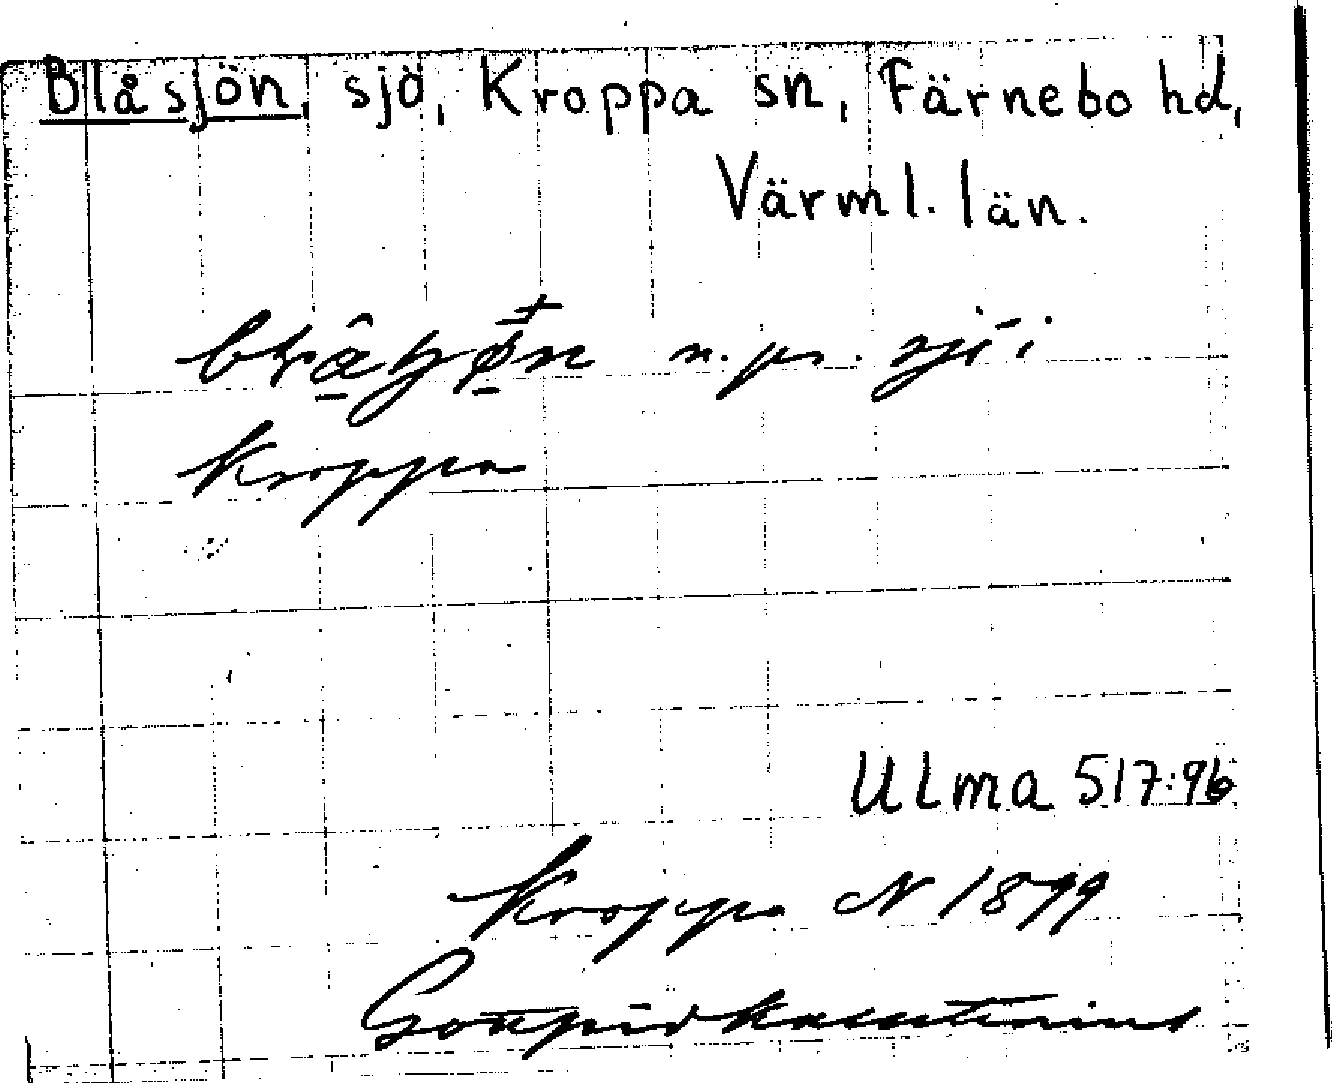 Blåsjön, sjö, Kroppa sn, Färnebo hd,
Värml. län.
n. pr. sjö i
Kroppa
ULma 517:96
Kroppa N 1899